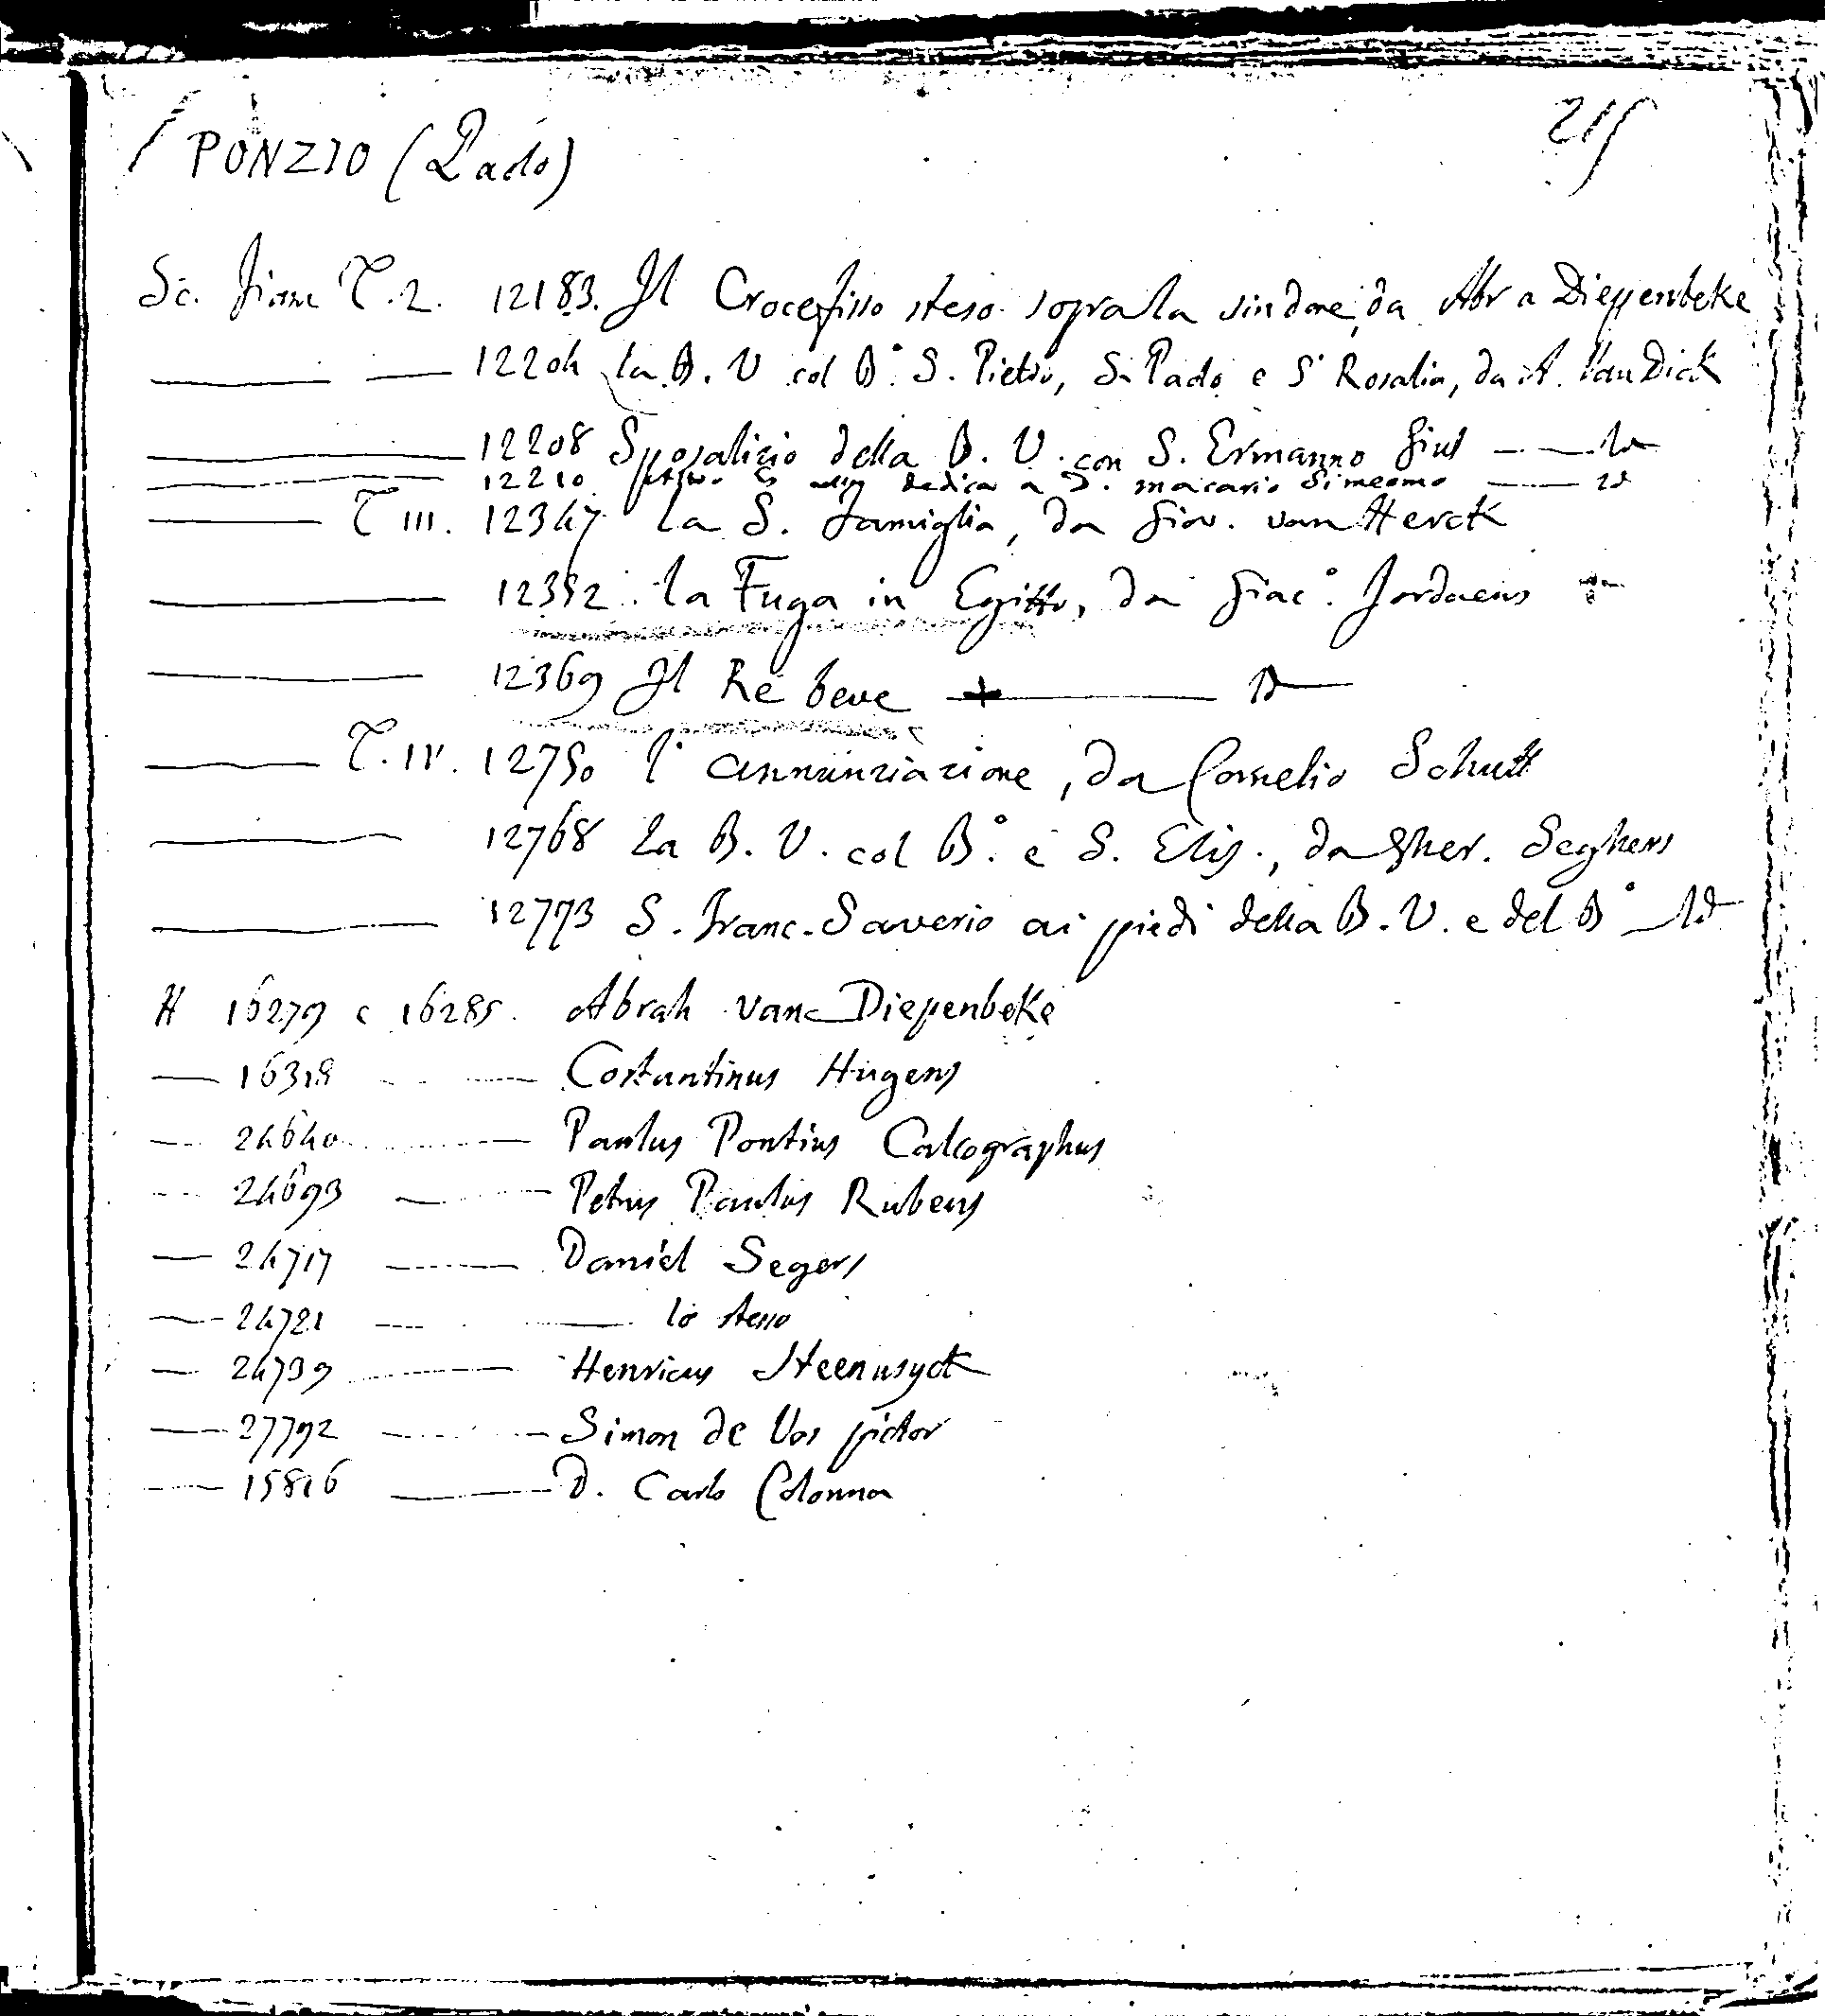 215
PONZIO (Paolo)
Sc. Fiam T. 2. 12183. Il Crocefisso steso sopra la sindone, da Abr a Diepenbeke
12204 la B. V col B.° S. Pietro, S. Paolo e S. Rosalia, da A. Van Dick
12208 Sposalizio della B. V. con S. Ermanno Gius — Id
12210 dedica a D. Macario Simeomo — Id
T III. 12347 la S. Famiglia, da Giov. van Herck
12352. la Fuga in Egitto, da Giac.° Jordaens
12369 Il Re beve + — Id
T. IV. 12750 l'annunziazione, da Cornelio Schutt
12768 La B. V. col B.° e S. Elis., da Gher. Seghers
12773 S. Franc. Saverio ai piedi della B. V. e del B.° — Id
H 16279 e 16285. Abrah van Diepenbeke
— 16318 — Costantinus Hugens
— 24640 — Paulus Pontius Calcographus
— 24693 — Petrus Paulus Rubens
— 24717 — Daniel Segers
— 24721 — lo stesso
— 24739 — Henricus Steenwyck
— 27792 — Simon de Vos pictor
— 15816 — D. Carlo Colonna